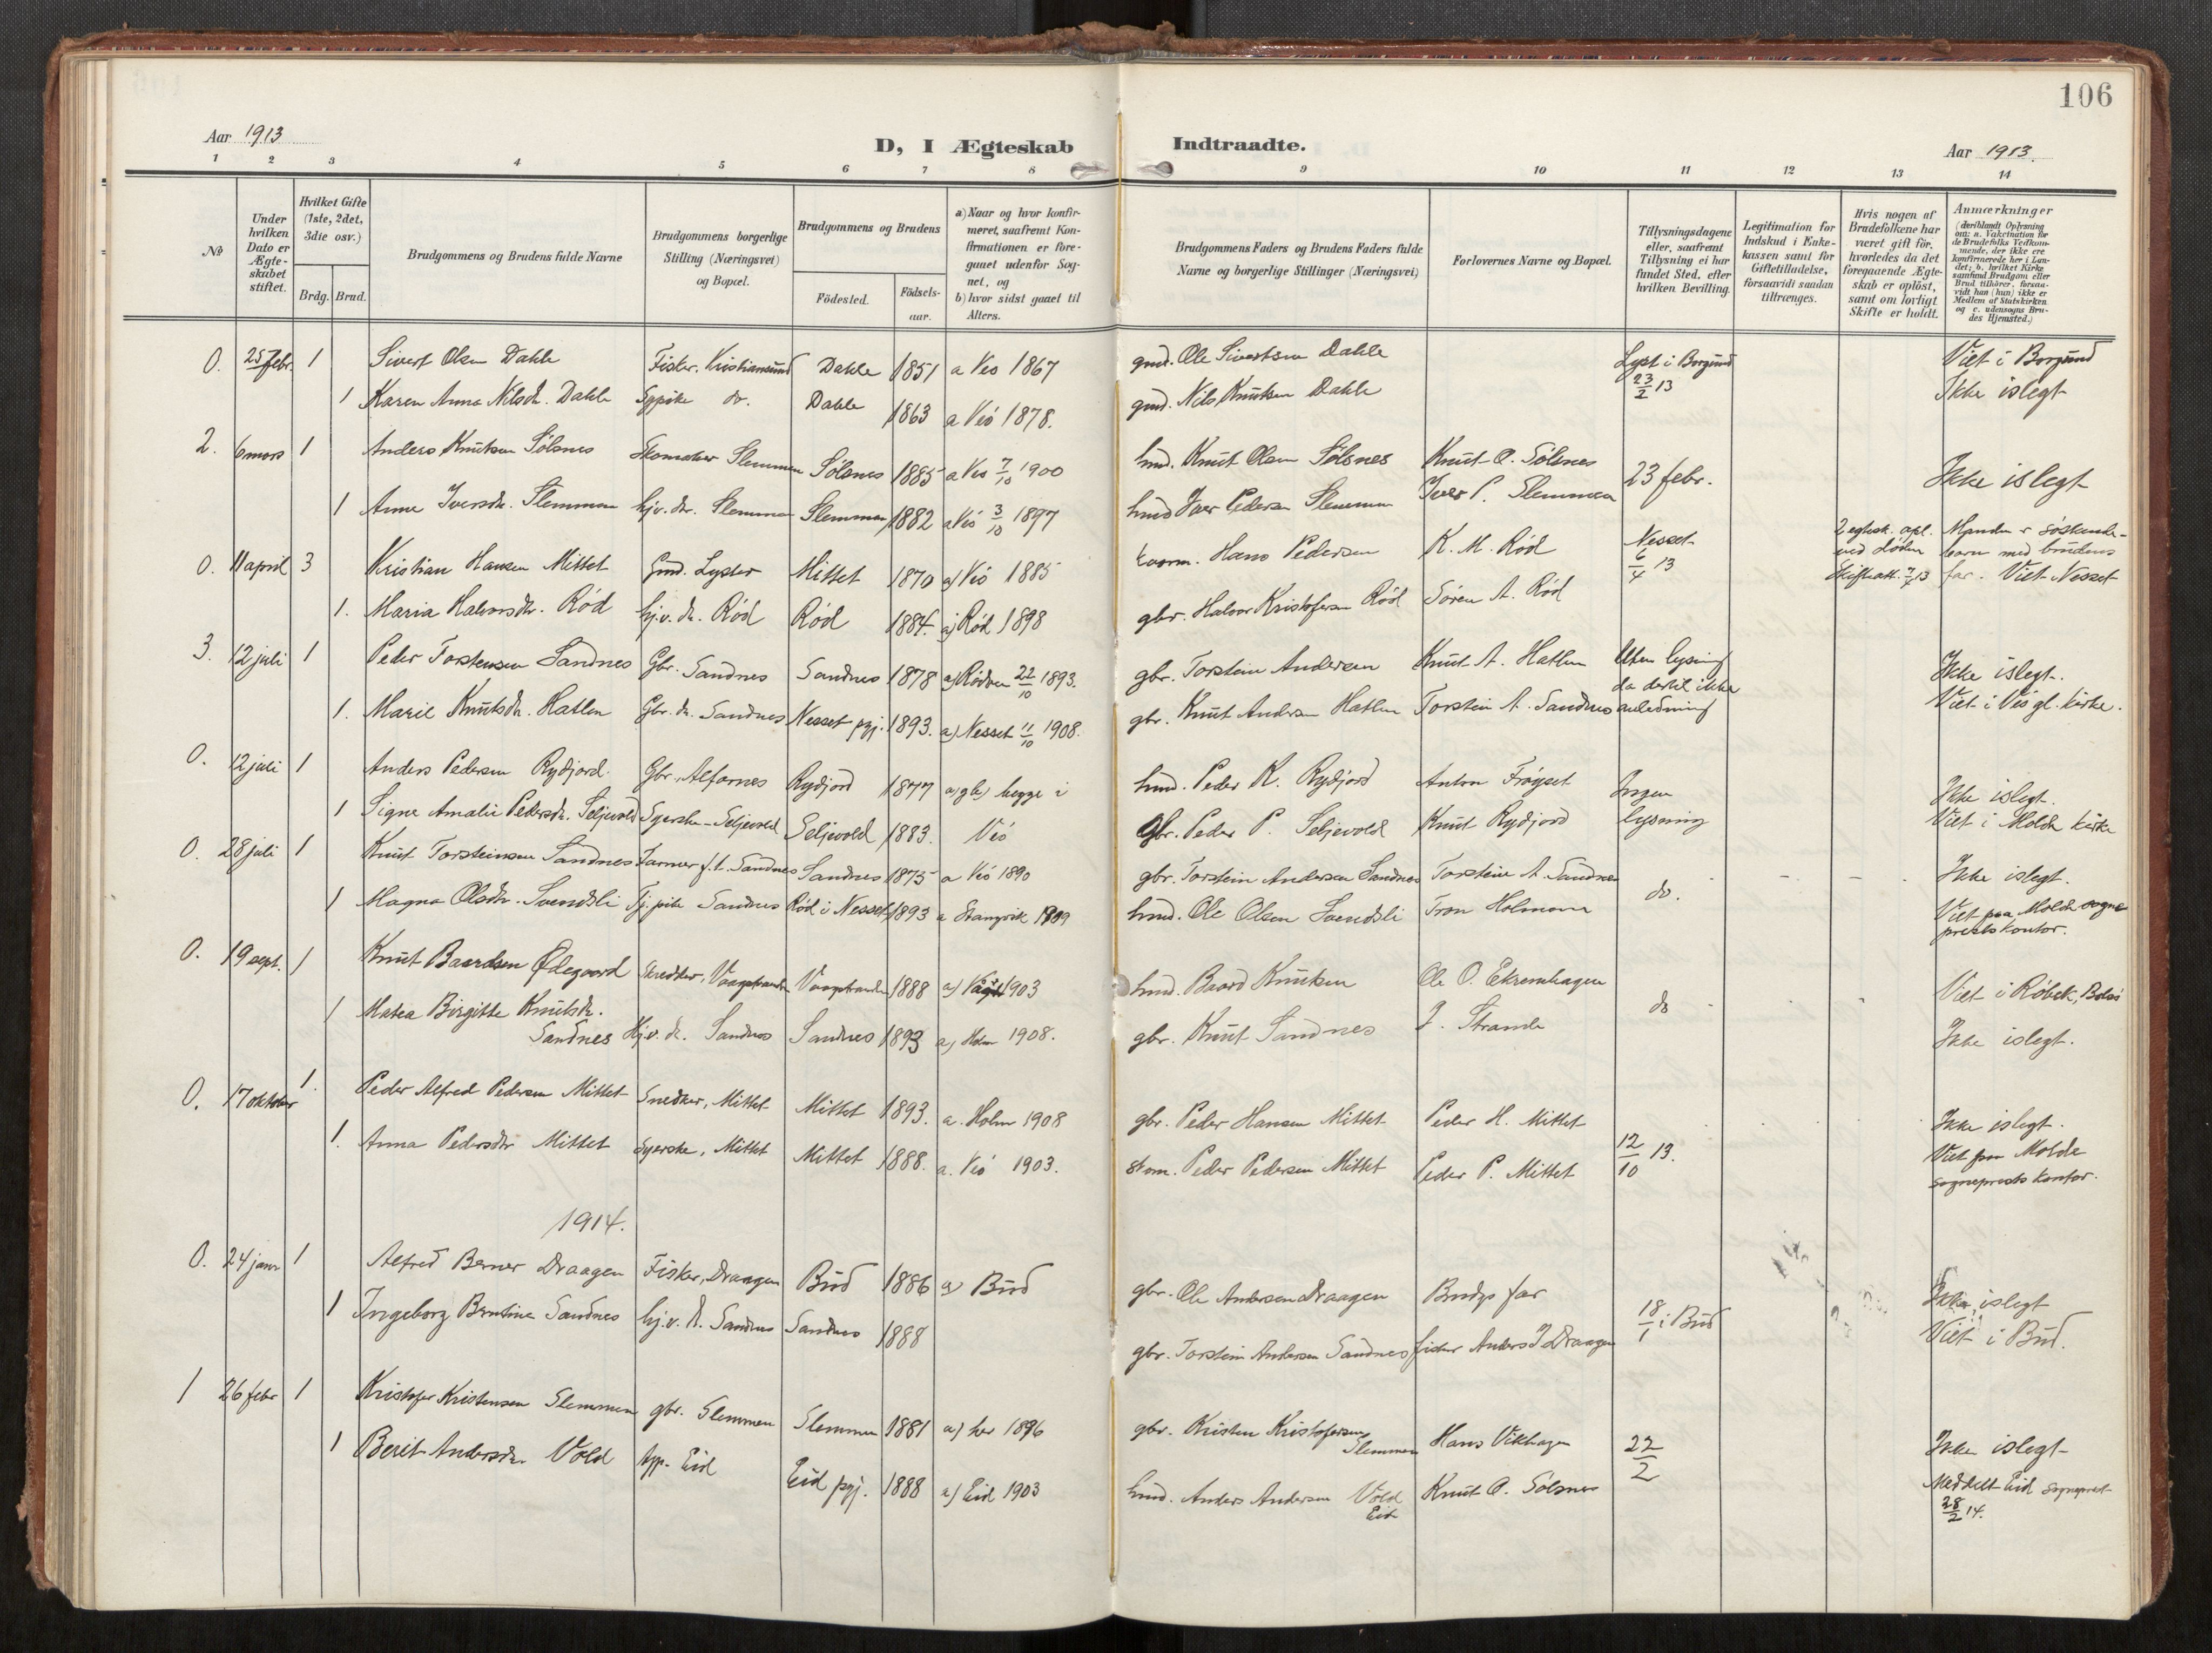 106
Aar 1913
D, I Ægteskab
Indtraadte.
Aar 1913.
1 2 3 4 5 6 7 8 9 10 11 12 13 14
No.
Under hvilken Dato er Ægteskabet stiftet.
Hvilket Gifte (1ste, 2det, 3die osv.)
Brdg. Brud.
Brudgommens og Brudens fulde Navne
Brudgommens borgerlige Stilling (Næringsvei) og Bopæl.
Brudgommens og Brudens
Födested.
Födsels-aar.
a) Naar og hvor konfirmeret, saafremt Konfirmationen er foregaaet udenfor Sognet, og
b) hvor sidst gaaet til Alters.
Brudgommens Faders og Brudens Faders fulde Navne og borgerlige Stillinger (Næringsvei)
Forlovernes Navne og Bopæl.
Tillysningsdagene eller, saafremt Tillysning ei har fundet Sted, efter hvilken Bevilling.
Legitimation for Indskud i Enkekassen samt for Giftetilladelse, forsaavidt saadan tiltrænges.
Hvis nogen af Brudefolkene har været gift för, hvorledes da det foregaaende Ægteskab er oplöst, samt om lovligt Skifte er holdt.
Anmærkninger (deriblandt Oplysning om: a. Vakcination för de Brudefolks Vedkommende, der ikke ere konfirmerede her i Landet; b. hvilket Kirkesamfund Brudgom eller Brud tilhörer, forsaavidt han (hun) ikke er Medlem af Statskirken og c. udensogns Brudes Hjemsted.)
0. 25 febr. 1 Sivert Olsen Dahle Fisker, Kristiansund Dahle 1851 a Veö 1867 gmd. Ole Sivertsen Dahle Lyst i Borgund 23/2 13 Viet i Borgund
1 Karen Anna Nilsdr. Dahle Sypike do. Dahle 1863 a Veö 1878. gmd. Nils Knutsen Dahle Ikke islegt
2. 6 mars 1 Anders Knutsen Sölsnes Skomaker Slemmen Sölsnes 1885 a Veö 7/10 1900 hmd. Knut Olsen Sölsnes Knut O. Sölsnes 23 febr. Ikke islegt
1 Anne Iversdr. Slemmen hj.v. dr. Slemmen Slemmen 1882 a Veö 3/10 1897 hmd Iver Pedersen Slemmen Iver P. Slemmen
0. 11 april 3 Kristian Hansen Mittet Gmd. Lyster Mittet 1870 a) Veö 1885 Hans Pedersen K. M. Röd Nesset 6/4 13 2 egtesk. opl. ved döden Skifteatt. 7/4 13 Manden er söskende-barn med brudens far. Viet Nesset
1. Maria Halvorsdr. Röd hj.v. dr. Röd Röd 1884. a) Röd 1898 gbr. Halvor Kristofersen Röd Sören A. Röd
3. 12 juli 1 Peder Torstensen Sandnes Gbr. Sandnes Sandnes 1878 a) Rödven 22/10 1893. gbr. Torstein Andersen Knut A. Hatlen Uten lysing da dertil ikke anledning Ikke islegt.
1. Marie Knutsdr. Hatlen Gbr. dr. Sandnes Nesset pgj. 1893. a) Nesset 11/10 1908. gbr. Knut Andersen Hatlen Torstein A. Sandnes Viet i Veö gl. kirke.
0. 12 juli 1 Anders Pedersen Rydjord Gbr., Alfarnes Rydjord 1877 a) gb) begge i hmd. Peder K. Rydjord Anton Fröyset Ingen Ikke islegt.
1 Signe Amalie Pedersdr. Seljevold Syerske - Seljevold Seljevold 1883. Veö Gbr. Peder P. Seljevold Knut Rydjord lysning Viet i Molde kirke
0. 28 juli 1 Knut Torsteinsen Sandnes Farmer f.t. Sandnes Sandnes 1875 a Veö 1890 gbr. Torstein Andersen Sandnes Torstein A. Sandnes do. Ikke islegt.
1 Magna Olsdr. Svendsli Tj. pike Sandnes Röd i Nesset 1893 a Stangvik 1909 hmd. Ole Olsen Svendsli Tron Holmann Viet paa Molde sogneprestskontor.
0. 19 sept. 1 Knut Baardsen Ödegaard Skredder, Vaagstranden Vaagstranden 1888 a) 1903 hmd. Baard Knutsen Ole O. Ekremhagen do Viet i Röbek, Bolsö
1 Matea Birgitte Knutsdr. Sandnes Hj.v. dr. Sandnes Sandnes 1893 a) Holm 1908. gbr. Knut Sandnes J. Strande Ikke islegt.
0. 17 oktober 1. Peder Alfred Pedersen Mittet Snedker, Mittet Mittet 1893. a. Holm 1908 gbr. Peder Hansen Mittet Peder H. Mittet 12/10 13. Ikke islegt.
1. Anna Pedersdr Mittet Syerske, Mittet Mittet 1888. a. Veö 1903. Peder Pedersen Mittet Peder P. Mittet Viet paa Molde sogneprestskontor.
1914.
0. 24 janr 1 Alfred Berner Draagen Fisker, Draagen Bud 1886 a) Bud gbr. Ole Andersen Draagen Brudgs far 18/1 i Bud Ikke islegt
1 Ingeborg Berntine Sandnes hj.v. dr. Sandnes Sandnes 1888 gbr. Torstein Andersen Sandnes fisker Anders J Draagen Viet i Bud.
1 26 febr 1 Kristofer Kristensen Slemmen gbr. Slemmen Slemmen 1881 a) her 1896 gbr. Kristen Kristofersen Slemmen Hans Vikhagen 22/2 Ikke islegt
1 Berit Andersdr. Vold Eid Eid pgj. 1888 a) Eid 1903 hmd. Anders Andersen Vold Eid Knut O. Sölsnes Meddelt Eid sogneprest 28/2 14.